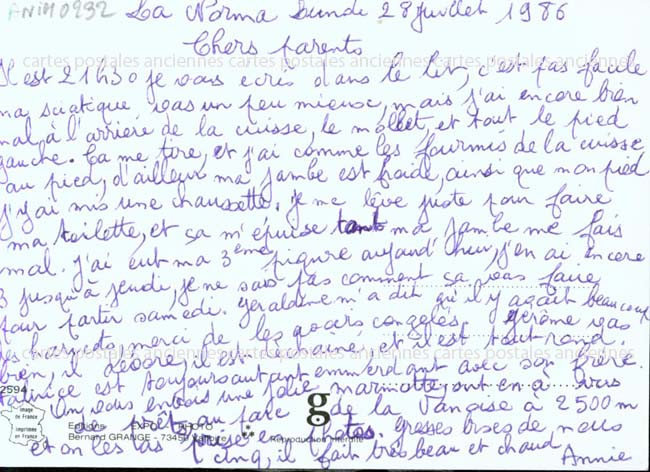 ANIM0932
La Norma Lundi 28 juillet 1986
Chers parents
cartes postales anciennes cartes postales anciennes cartes postales anciennes
Il est 21h30 je vous ecris dans le lit, c'est pas facile
ma sciatique vas un peu mieux, mais j'ai encore bien
mal, à l'arriere de la cuisse, le mollet, et tout le pied
gauche. Ça me tire, et j'ai comme les fourmis de la cuisse
au pied, d'ailleur ma jambe est froide, ainsi que mon pied
j'y ai mis une chaussette. je me lève juste pour faire
ma toilette, et ça m'épuise tant ma jambe me fais
mal. j'ai eut ma 3ème piqure aujourd'hui, j'en ai encore
3 jusqu'à jeudi, je ne sais pas comment ça vas faire
pour partir samedi. Geraldine m'a dit qu'il y avait beaucoup
de haricots, merci de les avoirs congelés. Jérôme vas
bien, il dévore, il est bonne, et il est tout rond.
cartes postales anciennes cartes postales anciennes cartes postales anciennes
est toujours autant emmerdant avec son frère.
On vous envois une jolie marmotte, ont en à vus
de près au parc de la Vanoise à 2500 m
et on les as prise en photos. grosses bises de nous
cinq, il fait très beau et chaud Annie
2594
Image
de France
imprimée en
France
Editions EXPO PHOTO
Bernard GRANGE - 73450 Valloire
g
Reproduction interdite